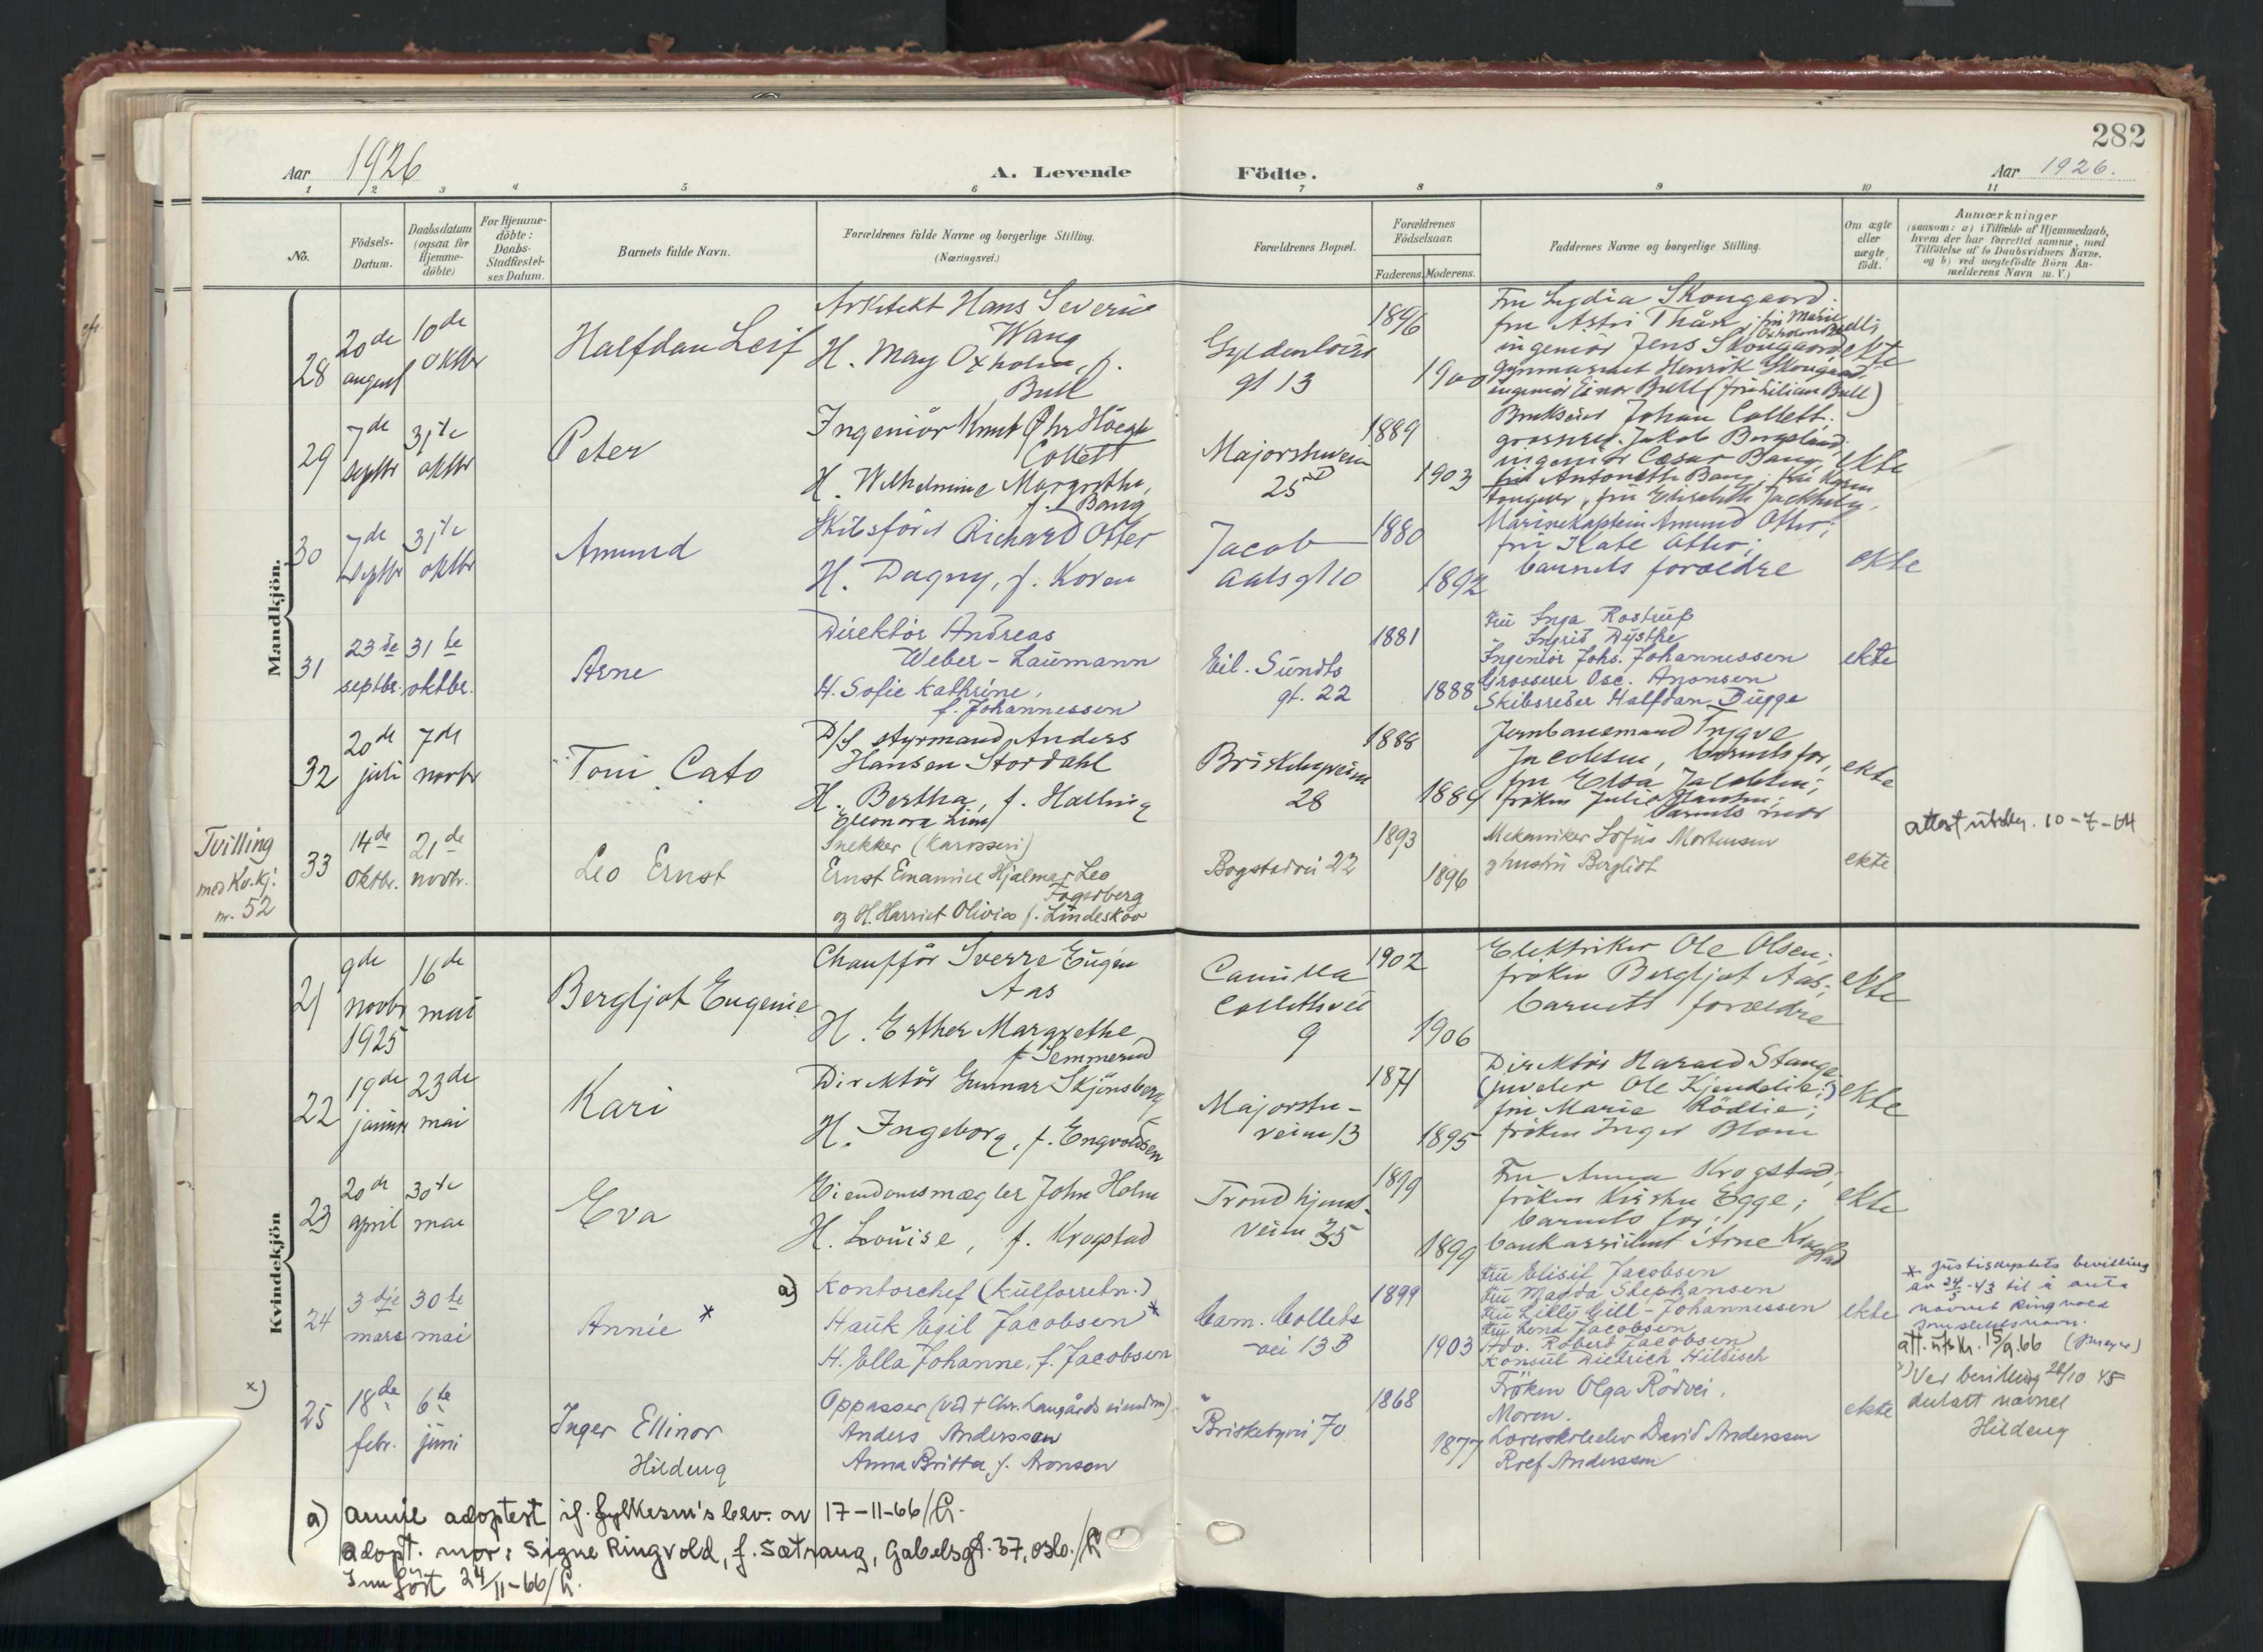 282
Aar 1926
A. Levende Födte.
Aar 1926.
1 2 3 4 5 6 7 8 9 10 11
No.
Födsels-
Datum.
Daabsdatum
(ogsaa for
Hjemme-
döbte)
For Hjemme-
döbte:
Daabs-
Stadfæstel-
ses Datum.
Barnets fulde Navn.
Forældrenes fulde Navne og borgerlige Stilling.
(Næringsvei.)
Forældrenes Bopæl.
Forældrenes
Födselsaar.
Faderens. Moderens.
Faddernes Navne og borgerlige Stilling.
Om ægte
eller
uægte
födt.
Anmærkninger
(saasom: a) i Tilfælde af Hjemmedaab,
hvem der har forrettet samme, med
Tilföielse af to Daabsvidners Navne.
og b) ved uægtefödte Börn An-
melderens Navn m. V.)
Mandkjön.
28
20de
august
10de
oktbr
Halfdan Leif
Arkitekt Hans Severin
Wang
H. May Oxholm, f.
Bull
Gyldenløves
gt 13
1896
1900
Fru Lydia Skougaard.
fru Astri Thån; frk Marie
ingeniør Jens Skougaard
Henrik Skougaard,
ingeniör Einar Bull (fru Lilian Bull)
ekte
29
7de
septbr
31te
oktbr
Peter
Ingeniör Knut Chr Höegh
Collett
H. Wilhelmine Margrethe,
f. Bang
Majorstuveien
25D
1889
1903
Brukseier Johan Collett;
grosserer Jakob Bergsland
ingeniör Cæsar Bang;
fru Antonette Bang; fru Karen
fru Elisabeth
ekte
30
7de
septbr
31te
oktbr
Amund
Skibsförer Richard Otter
H. Dagny, f. Koren
Jacob
Aals gt 10
1880
1892
Marinekaptein Amund Otter;
fru Kate Otter;
barnets forældre
ekte
31
23de
septbr.
31te
oktbr.
Arne
Direktör Andreas
Weber-Laumann
H. Sofie Kathrine,
f. Johannessen
Eil. Sundts
gt. 22
1881
1888
Fru Inga Rostrup
" Ingrid Dysthe
Ingeniör Johs. Johannessen
Grosserer Osc. Aronsen
Skibsreder Halfdan Bugge
ekte
32
20de
juli
7de
novbr
Toni Cato
D/S styrmand Anders
Hansen Stordahl
H. Bertha, f. Halling
Eleonora Lium
Briskebyveien
28
1888
1884
Jernbanemand Trygve
Jacobsen, barnets far,
fru Elsa Jacobsen;
fröken Julie Hansen;
barnets mor
ekte
Tvilling
med Kv.kj.
nr. 52
33
14de
oktbr.
21de
novbr.
Leo Ernst
Snekker (Karosseri)
Ernst Emanuel Hjalmar Leo
Fagerberg
og H. Harriet Olivia f. Lindeskov
Bogstadvei 22
1893
1896
Mekaniker Sofus Mortensen
og hustru Bergliot
ekte
attest utstdt. 10-7-64
Kvindekjön
21
9de
novbr
1925
16de
mai
Bergljot Eugenie
Chaufför Sverre Eugen
Aas
H. Esther Margrethe
f. Semmerud
Camilla
Colletsvei
9
1902
1906
Elektriker Ole Olsen;
fröken Bergljot Aas;
barnets forældre
ekte
22
19de
januar
23de
mai
Kari
Direktör Gunnar Skjönsberg
H. Ingeborg, f. Engvoldsen
Majorstu-
veien 13
1871
1895
Direktör Harald Stange
(juveler Ole Kjendelie;)
fru Marie Rödlie;
fröken Inger Blom
ekte
23
20de
april
30te
mai
Eva
Eiendomsmægler John Holm
H. Louise, f. Krogstad
Trondhjems-
veien 35
1899
1899
Fru Anna Krogstad;
fröken Kirsten Egge;
barnets far;
bankassistent Arne Krogstad
ekte
24
3dje
mars
30te
mai
Annie *
a)
Kontorchef (Kulforretn.)
Hauk Egil Jacobsen *
H. Ella Johanne, f. Jacobsen
Cam. Collets
vei 13B
1899
1903
Fru Elisif Jacobsen
Fru Magda Stephansen
Fru Lilly Gill-Johannessen
Fru Lena Jacobsen
Adv. Robert Jacobsen
Konsul Dietrich Hildisch
ekte
* Justisdeptets bevilling
av 24/5-43 til å anta
navnet Ringvold
som slektsnavn.
att. utskr. 15/9.66
x)
25
18de
febr.
6te
juni
Inger Ellinor
Hildeng
Oppasser (ved + Chr. Langårds eiendom)
Anders Anderssen
Anna Britta f. Aronsen
Briskebyvei 70
1868
1877
Fröken Olga Rödvei.
Moren.
David Anderssen
Rolf Anderssen
ekte
x) Ved bevilling 28/10 45
antatt navnet
Hildeng
a) Annie adoptert if. fylkesm's bev. av 17-11-66/
adopt. mor: Signe Ringvold, f. Sætrang, Gabelsgt. 37, Oslo./
Innfört 24/11-66/